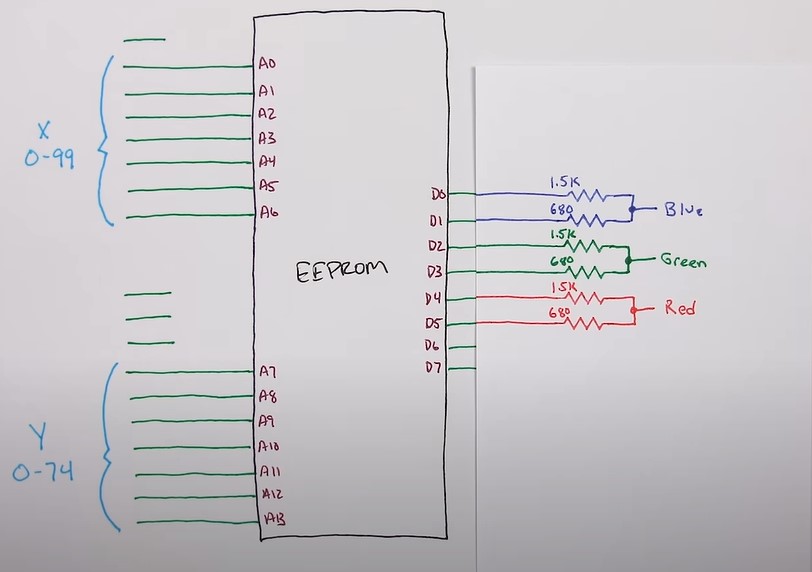 X
0-99
A0
A1
A2
A3
A4
A5
A6
EEPROM
Y
0-74
A7
A8
A9
A10
A11
A12
A13
D0
D1
D2
D3
D4
D5
D6
D7
1.5K
680
Blue
1.5K
680
Green
1.5K
680
Red